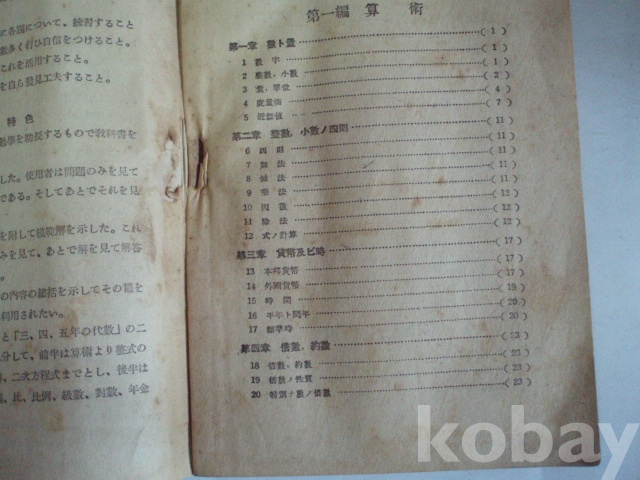 に各題について、練習すること
数多く行ひ自信をつけること。
これを活用すること。
を自ら發見工夫すること。
特色
勉學を助長するもので教科書を
した。使用者は問題のみを見て
である。そしてあとでそれを見
を附して模範解を示した。これ
みを見て、あとで解を見て解答
の内容の總括を示してその題を
利用されたい。
と「三、四、五年の代數」の二
分して、前半は算術より整式の
二次方程式までとし、後半は
比、比例、級數、對數、年金
第一編 算術
第一章 數ト量 ( 1 )
1 數字 ( 1 )
2 整數，小數 ( 2 )
3 量，單位 ( 4 )
4 度量衡 ( 4 )
5 近似値 ( 7 )
第二章 整數，小數ノ四則 ( 11 )
6 四則 ( 11 )
7 加法 ( 11 )
8 減法 ( 11 )
9 乘法 ( 12 )
10 因數 ( 12 )
11 除法 ( 12 )
12 式ノ計算 ( 12 )
第三章 貨幣及ビ時 ( 17 )
13 本邦貨幣 ( 17 )
14 外國貨幣 ( 17 )
15 時間 ( 19 )
16 平年ト閏年 ( 20 )
17 標準時 ( 20 )
第四章 倍數，約數 ( 23 )
18 倍數，約數 ( 23 )
19 倍數ノ性質 ( 23 )
20 特別ナ數ノ倍數 ( 23 )
kobay